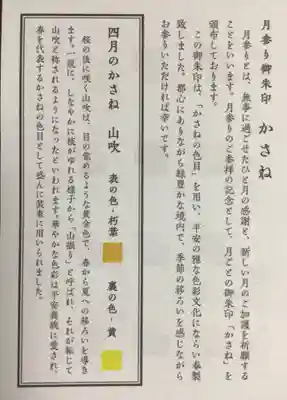 月参り御朱印 かさね
月参りとは、無事に過ごせたひと月の感謝と、新しい月のご加護を祈願する
ことをいいます。月参りのご参拝の記念として、月ごとの御朱印「かさね」を
頒布しております。
この御朱印は、「かさねの色目」を用い、平安の雅な色彩文化にならい奉製
致しました。都心にありながら緑豊かな境内で、季節の移ろいを感じながら
お参りいただければ幸いです。
四月のかさね 山吹 表の色・朽葉 裏の色・黄
桜の後に咲く山吹は、目の覚めるような黄金色で、春から夏への移ろいを導き
ます。一説に、しなやかに枝がゆれる様子から「山振り」と呼ばれ、それが転じて
山吹と称されるようになったといわれます。華やかな色彩は平安貴族に愛され、
春を代表するかさねの色目として盛んに装束に用いられました。